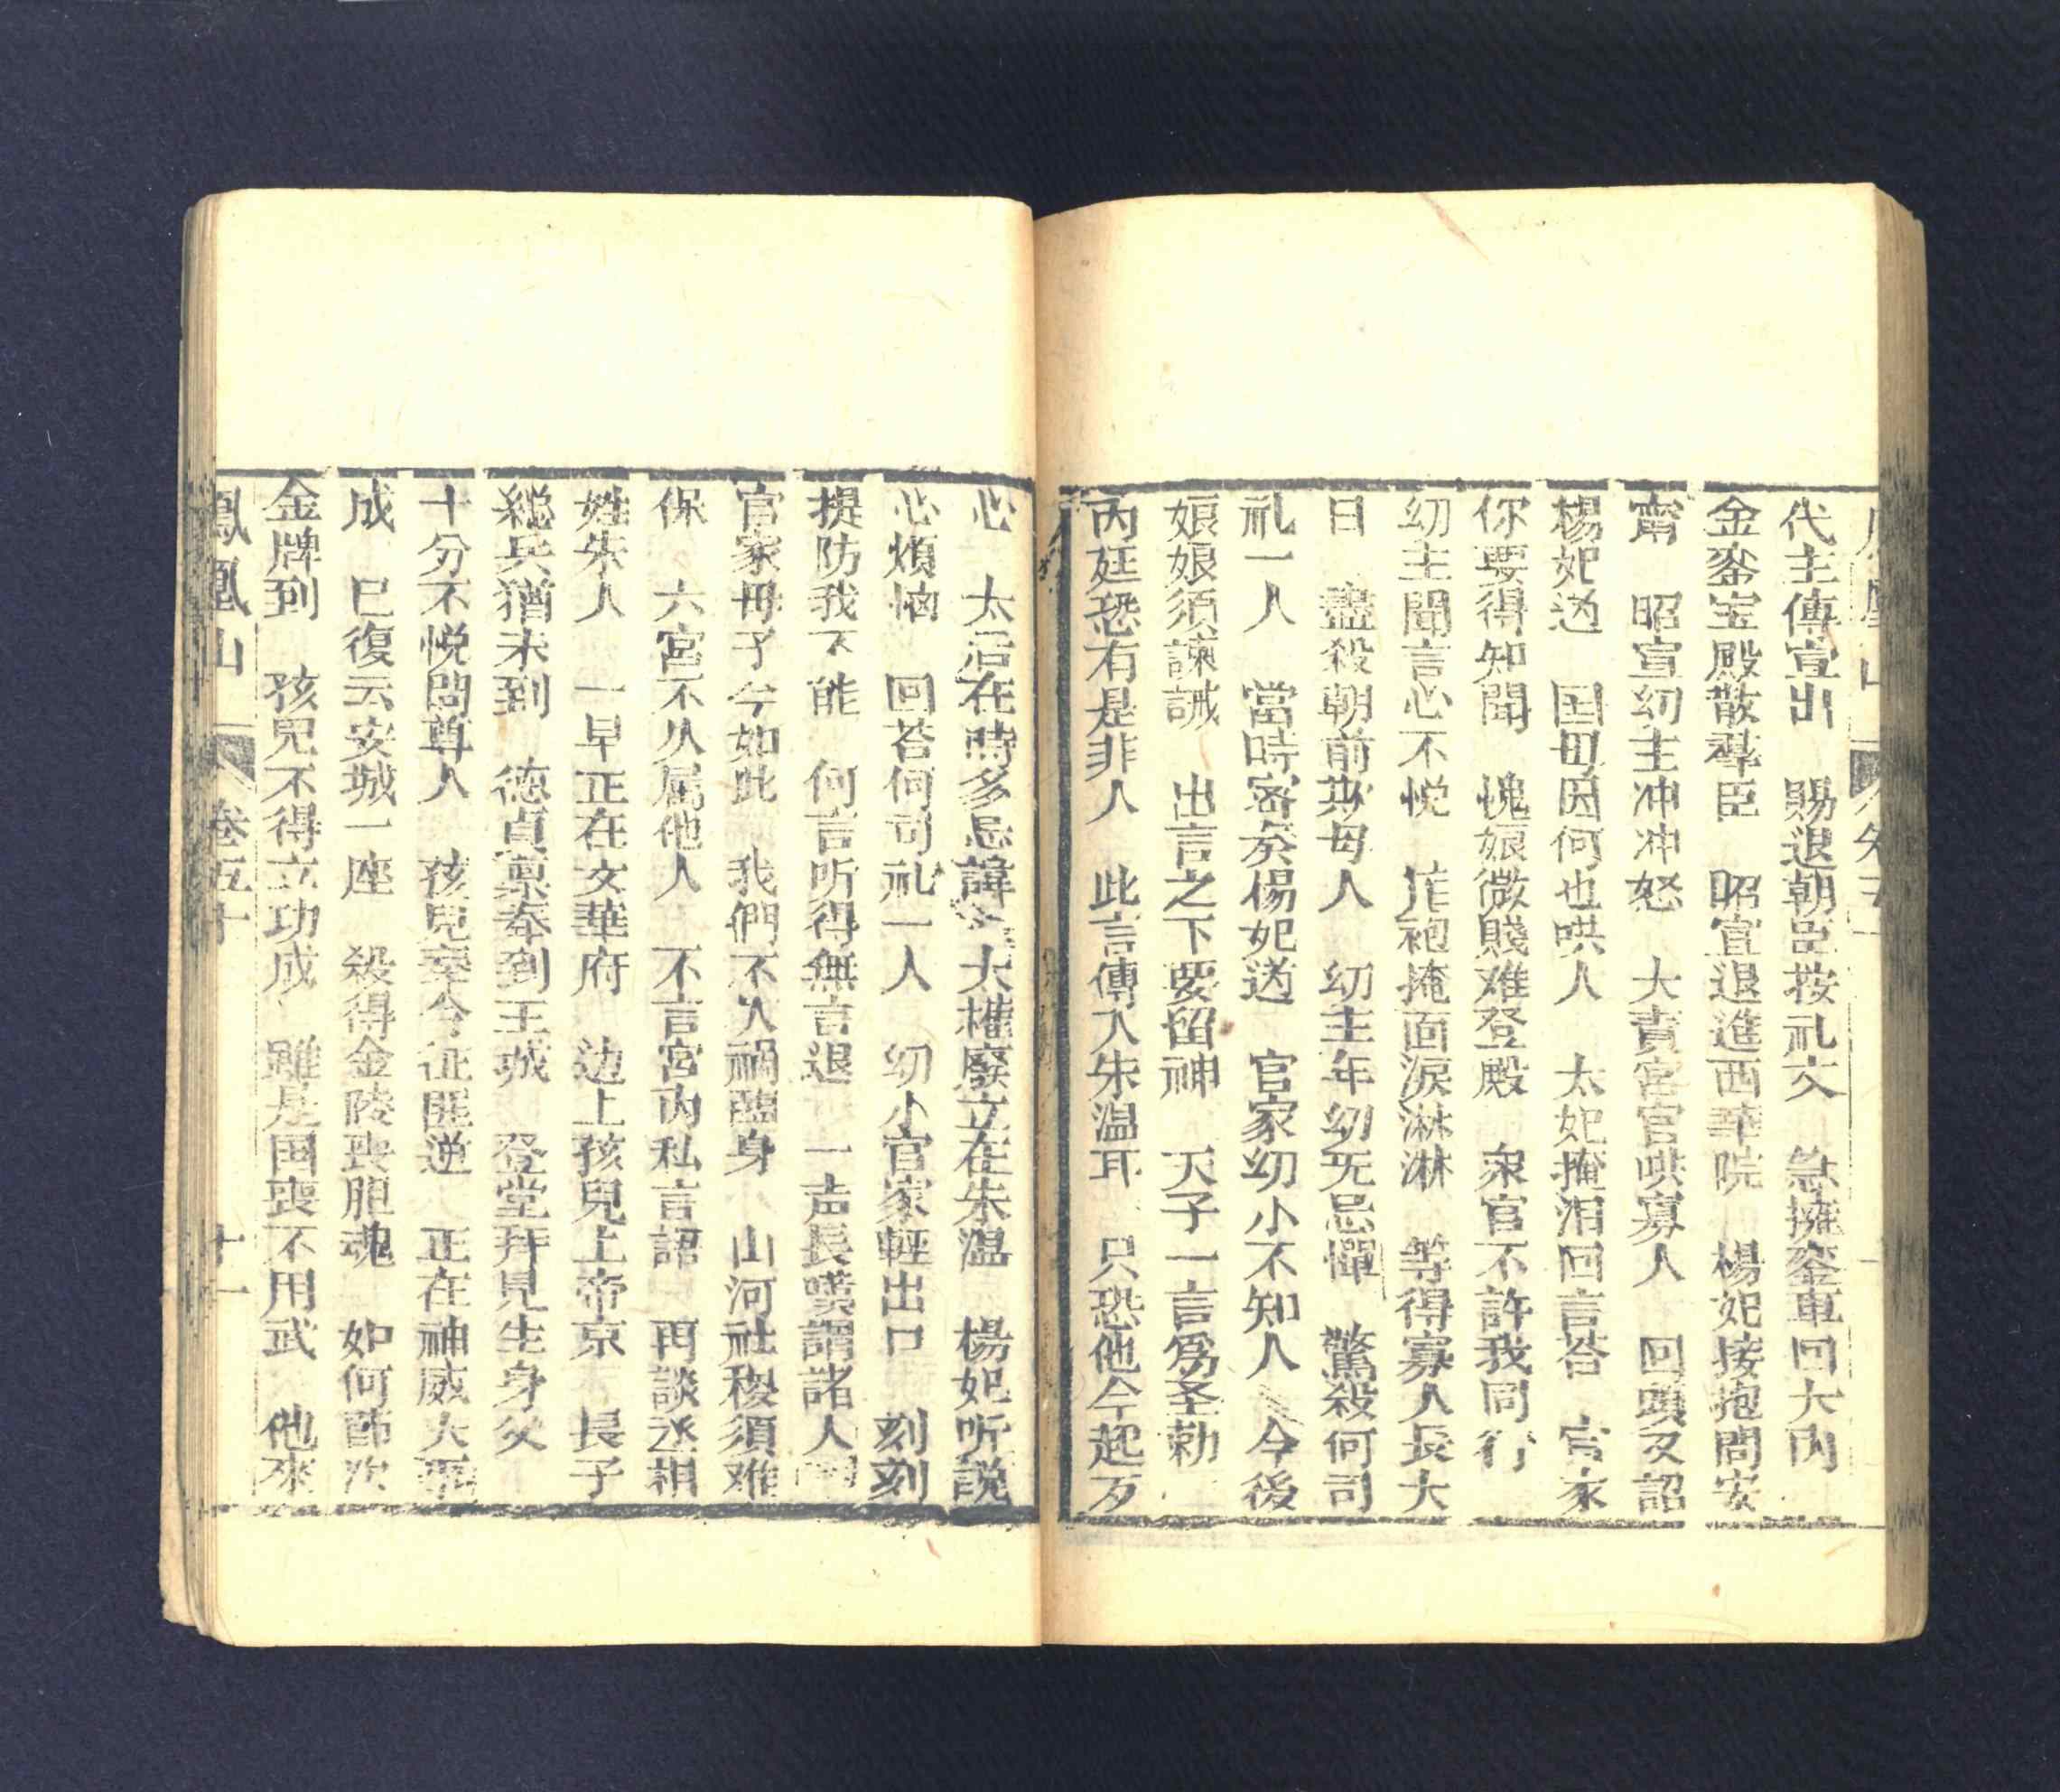 代主傳宣出　賜退朝臣按礼文　急擁鑾車回大内
金鑾宝殿散羣臣　昭宣退進西華院　楊妃接抱問安
甯　昭宣幼主冲冲怒　大責宮官哄寡人　回頭又詔
楊妃道　国母因何也哄人　太妃掩泪回言荅　官家
你要得知聞　愧娘微賤难登殿　衆官不許我同行
幼主聞言心不悦　龍袍掩面淚淋淋　等得寡人長大
日　盡殺朝前欺母人　幼主年幼无忌憚　驚殺何司
礼一人　當時密奏楊妃道　官家幼小不知人　今後
娘娘須諫誡　出言之下要留神　天子一言為圣勅
内廷恐有是非人　此言傳入朱温耳　只恐他今起歹
心　太后在時多忌諱　大權廢立在朱温　楊妃听説
心煩惱　回荅何司礼一人　幼小官家輕出口　刻刻
提防我不能　何言听得無言退　一声長嘆謂諸人
官家母子今如此　我們不久禍臨身　山河社稷須难
保　六宮不久属他人　不言宮内私言語　再談丞相
姓朱人　一早正在文華府　边上孩兒上帝京　長子
総兵猶未到　德貞禀奉到王城　登堂拜見生身父
十分不悦問尊人　孩兒奉令征匪逆　正在神威大
成　已復云安城一座　殺得金陵喪胆魂　如何節次
金牌到　孩兒不得立功成　雖是国喪不用武　他來
鳳凰山　卷五十　十一